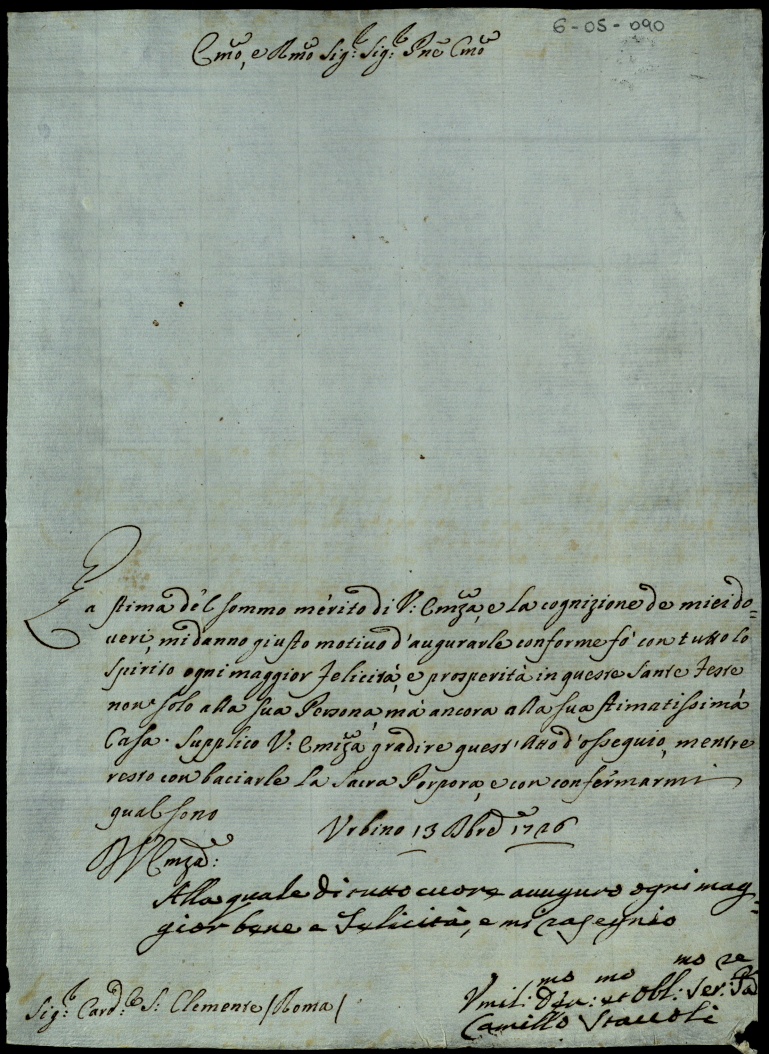 6-05-090
Emo, e Rmo Sig:r Sig:r Pne Cmo
La stima del sommo merito di V: Emza, e la cognizione de miei do,,
veri, mi danno giusto motivo d'augurarle conforme fó con tutto lo
spirito ogni maggior Felicità, e prosperità in queste Sante Feste
non solo alla sua Persona, má ancora alla sua stimatissima
Casa. Supplico V: Emza, gradire quest'Atto d'ossequio, mentre
resto con baciarle la Sacra Porpora, e con confermarmi
qual sono
Urbino 13 Xbre 1726
Di V: Emza:
Alla quale di tutto cuore auuguro ogni mag,,
gior bene e Felicità, e mi rasegnio
Sig:r Card:le S: Clemente /Roma/
Vmil:mo Deu:mo et Obl:mo Ser:re
Camillo Staccoli